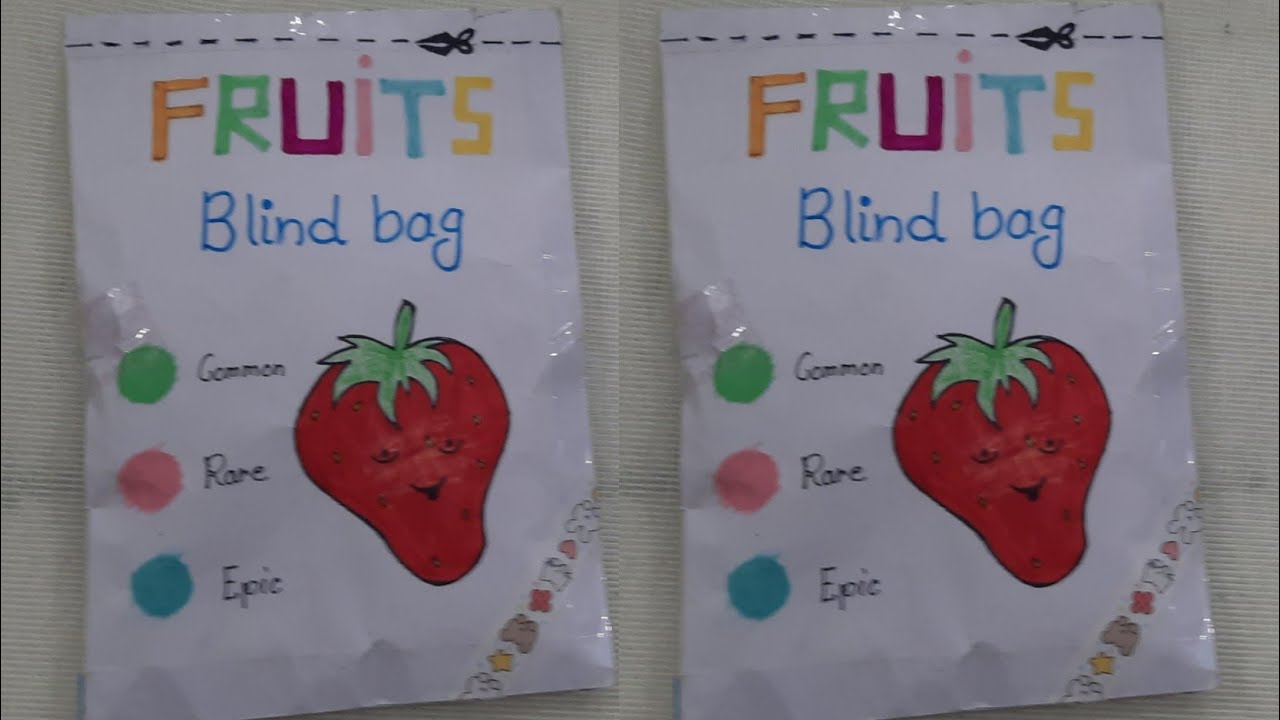 FRUiTS
Blind bag
Common
Rare
Epic
FRUiTS
Blind bag
Common
Rare
Epic